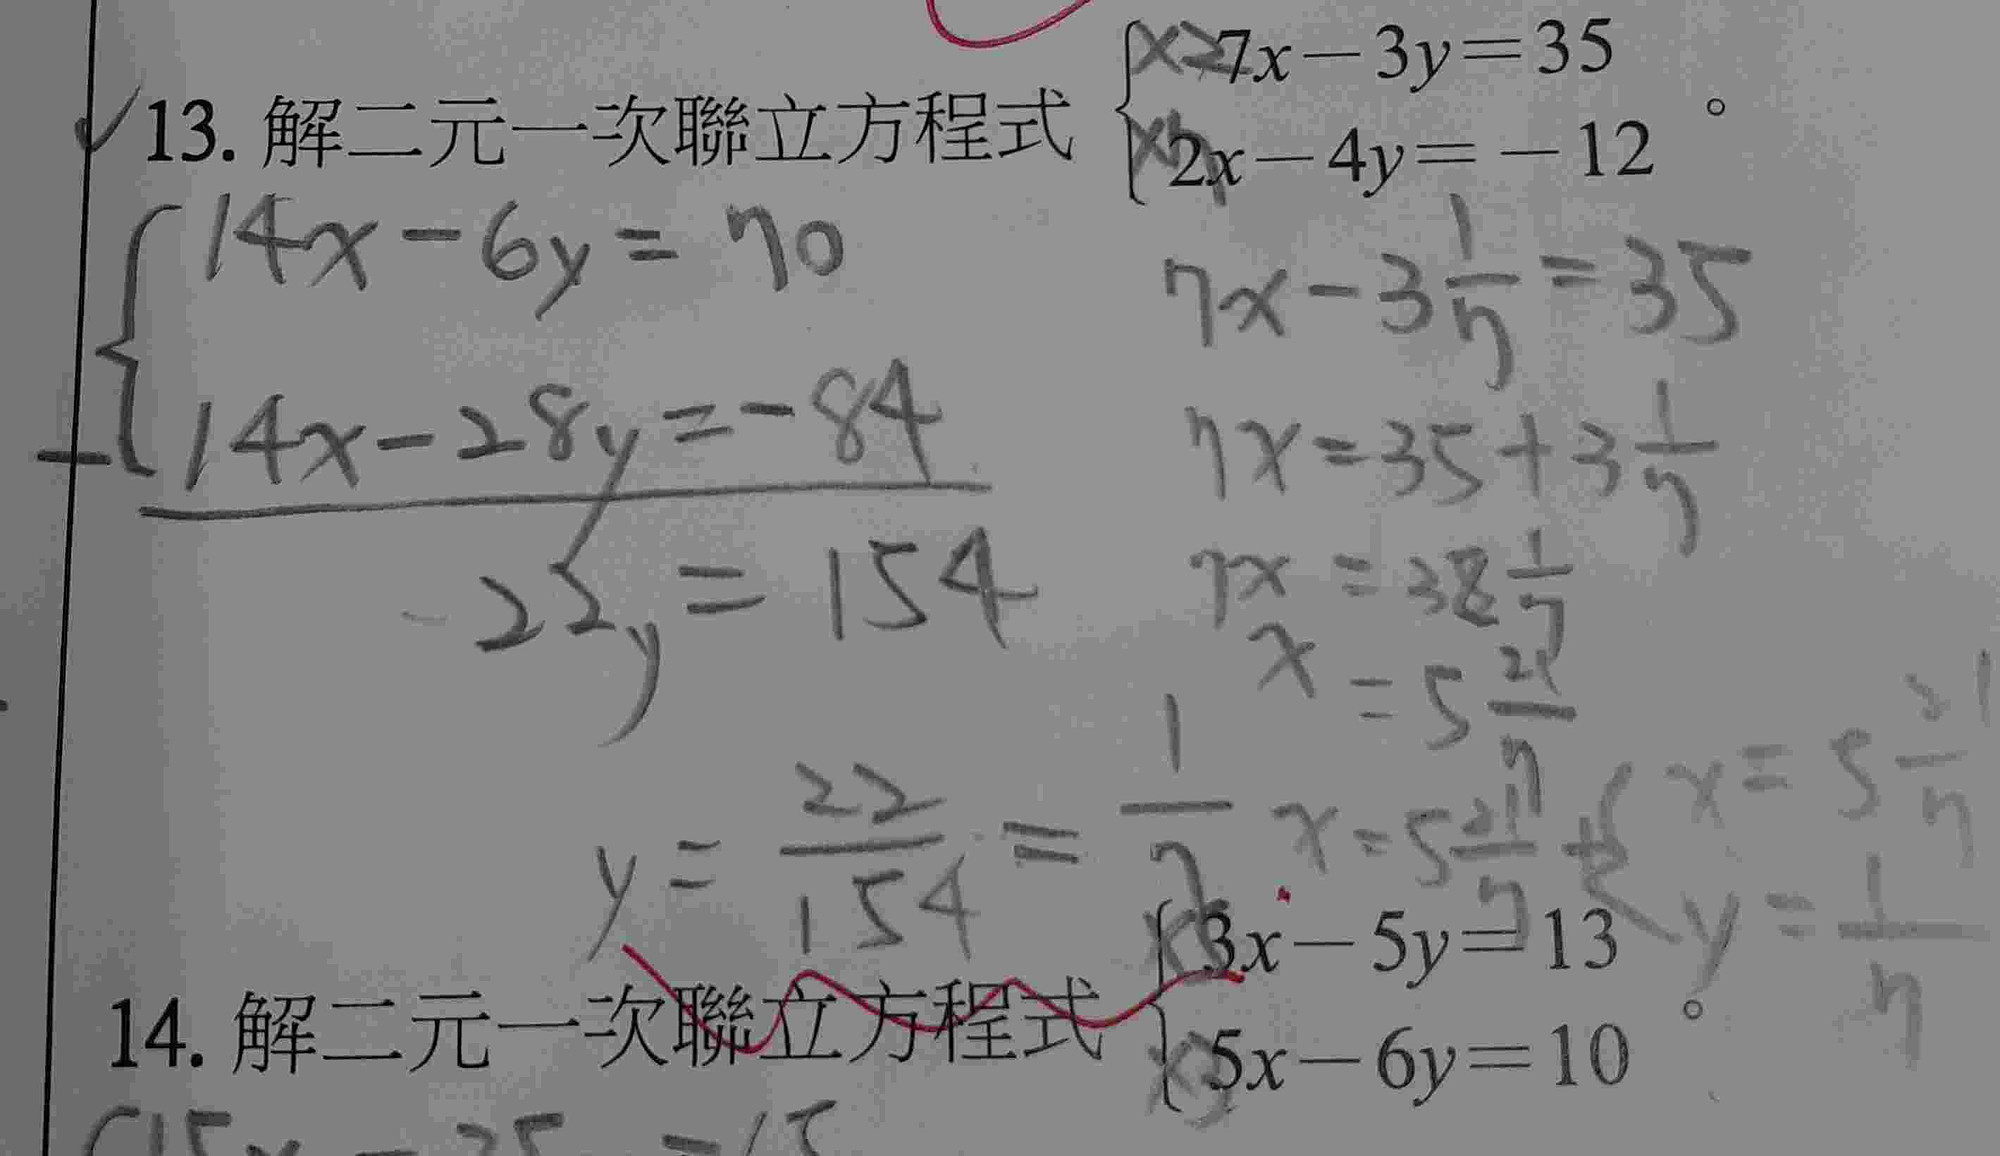 13. 解二元一次聯立方程式 { ×2 7x－3y＝35
×7 2x－4y＝－12 。
14x－6y＝70
14x－28y＝－84
22y＝154
y＝22/154＝1/7
7x－3 1/7＝35
7x＝35＋3 1/7
7x＝38 1/7
x＝5 21/7
x＝5 21/7
x＝5 21/7
y＝1/7
14. 解二元一次聯立方程式 { 3x－5y＝13
5x－6y＝10 。